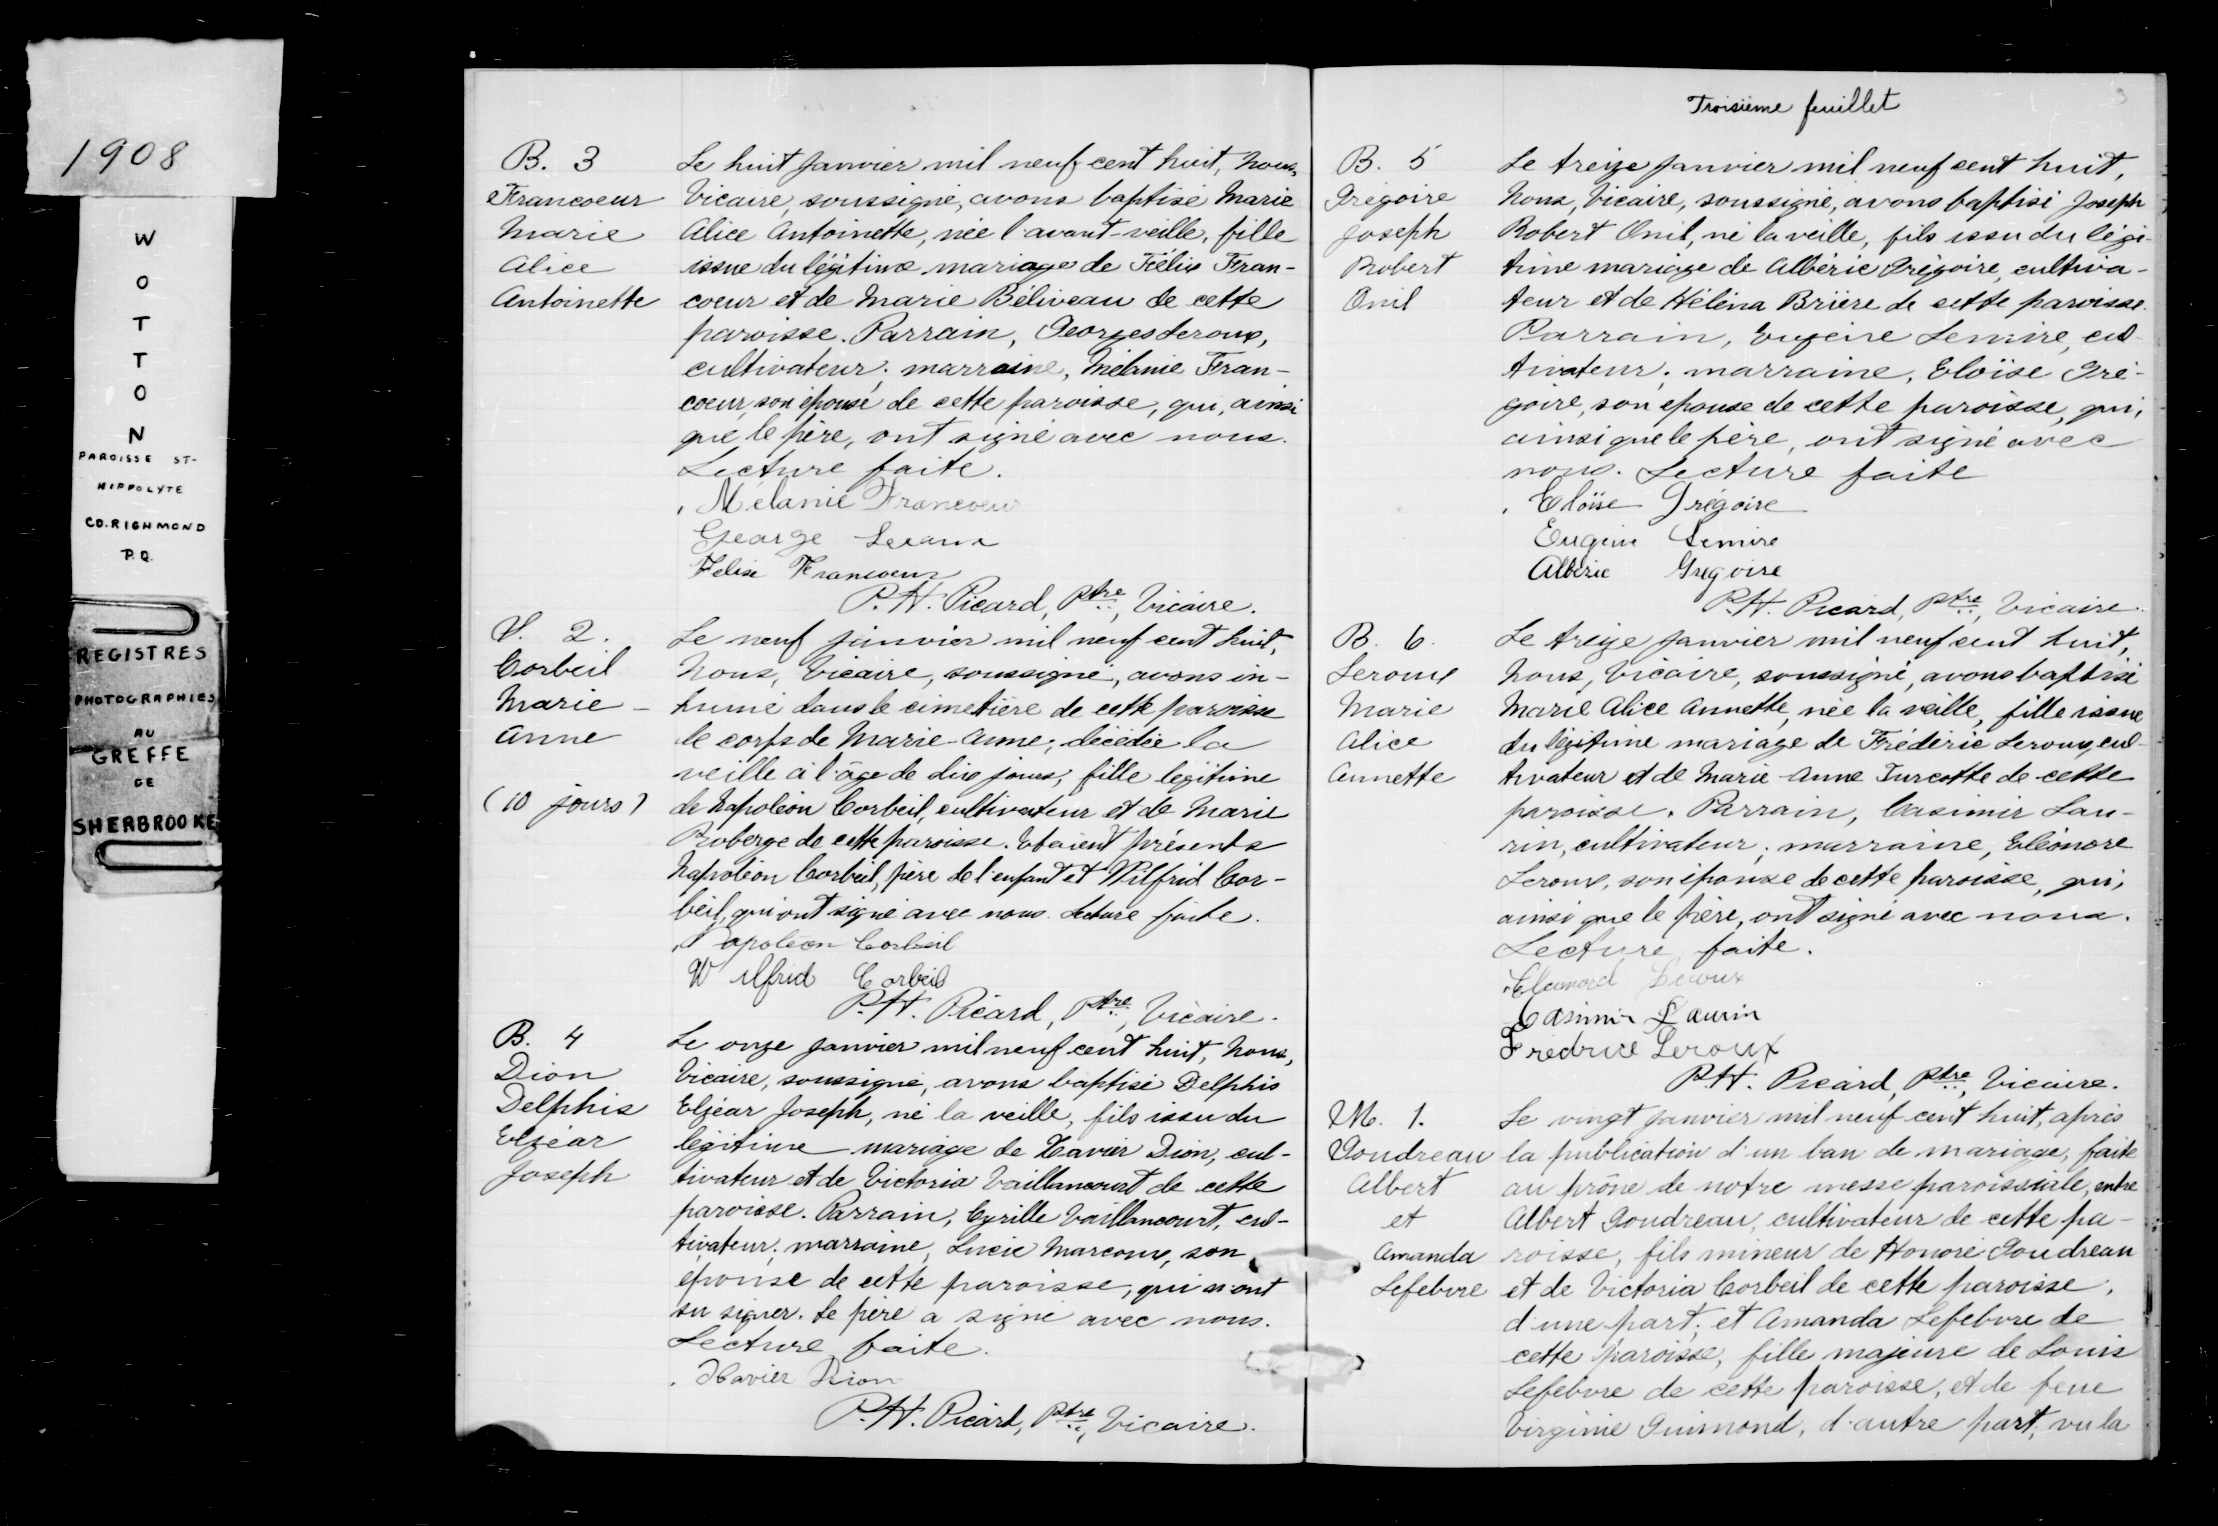 1908
W
O
T
T
O
N
PAROISSE ST-
HIPPOLYTE
CO. RICHMOND
P.Q.
REGISTRES
PHOTOGRAPHIES
AU
GREFFE
GE
SHERBROOKE
B. 3
Francoeur
Marie
Alice
Antoinette
Le huit Janvier mil neuf cent huit, Nous,
Vicaire, soussigné, avons baptisé Marie
Alice Antoinette, née l'avant-veille, fille
issue du légitime mariage de Félix Fran-
coeur et de Marie Béliveau de cette
paroisse. Parrain, Georges Leroux,
cultivateur; marraine, Mélanie Fran-
coeur, son épouse de cette paroisse, qui, ainsi
que le père, ont signé avec nous.
Lecture faite.
Mélanie Francoeur
George Leroux
Felix Francoeur
P.H. Picard, Ptre, Vicaire.
S. 2.
Corbeil
Marie-
Anne
(10 jours)
Le neuf janvier mil neuf cent huit,
Nous, Vicaire, soussigné, avons in-
humé dans le cimetière de cette paroisse
le corps de Marie-Anne, décédée la
veille à l'âge de dix jours, fille légitime
de Napoléon Corbeil, cultivateur et de Marie
Roberge de cette paroisse. Etaient présents
Napoléon Corbeil, père de l'enfant et Wilfrid Cor-
beil, qui ont signé avec nous. Lecture faite.
Napoléon Corbeil
Wilfrid Corbeil
P.H. Picard, Ptre, Vicaire.
B. 4
Dion
Delphis
Elzéar
Joseph
Le onze Janvier mil neuf cent huit, Nous,
Vicaire, soussigné, avons baptisé Delphis
Elzéar Joseph, né la veille, fils issu du
légitime mariage de Xavier Dion, cul-
tivateur et de Victoria Vaillancourt de cette
paroisse. Parrain, Cyrille Vaillancourt, cul-
tivateur; marraine, Lucie Marcoux, son
épouse de cette paroisse, qui n'ont
su signer. Le père a signé avec nous.
Lecture faite.
Xavier Dion
P.H. Picard, Ptre, Vicaire.
Troisième feuillet
3
B. 5
Grégoire
Joseph
Robert
Onil
Le treize Janvier mil neuf cent huit,
Nous, Vicaire, soussigné, avons baptisé Joseph
Robert Onil, né la veille, fils issu du légi-
time mariage de Albéric Grégoire, cultiva-
teur et de Héléna Brière de cette paroisse.
Parrain, Eugène Lemire, cul-
tivateur; marraine, Eloïse Gré-
goire, son épouse de cette paroisse, qui,
ainsi que le père, ont signé avec
nous. Lecture faite
Eloïse Grégoire
Eugène Lemire
Albéric Grégoire
P.H. Picard, Ptre, Vicaire.
B. 6.
Leroux
Marie
Alice
Annette
Le treize Janvier mil neuf cent huit,
Nous, Vicaire, soussigné, avons baptisé
Marie Alice Annette, née la veille, fille issue
du légitime mariage de Frédéric Leroux, cul-
tivateur et de Marie-Anne Turcotte de cette
paroisse. Parrain, Casimir Lau-
rin, cultivateur; marraine, Eléonore
Leroux, son épouse de cette paroisse, qui,
ainsi que le père, ont signé avec nous.
Lecture faite.
Eleonord Leroux
Casimir Laurin
Fredrice Leroux
P.H. Picard, Ptre, Vicaire.
M. 1.
Goudreau
Albert
et
Amanda
Lefebvre
Le vingt Janvier mil neuf cent huit, après
la publication d'un ban de mariage, faite
au prône de notre messe paroissiale, entre
Albert Goudreau, cultivateur de cette pa-
roisse, fils mineur de Honoré Goudreau
et de Victoria Corbeil de cette paroisse,
d'une part, et Amanda Lefebvre de
cette paroisse, fille majeure de Louis
Lefebvre de cette paroisse, et de feue
Virginie Guimond, d'autre part; vu la